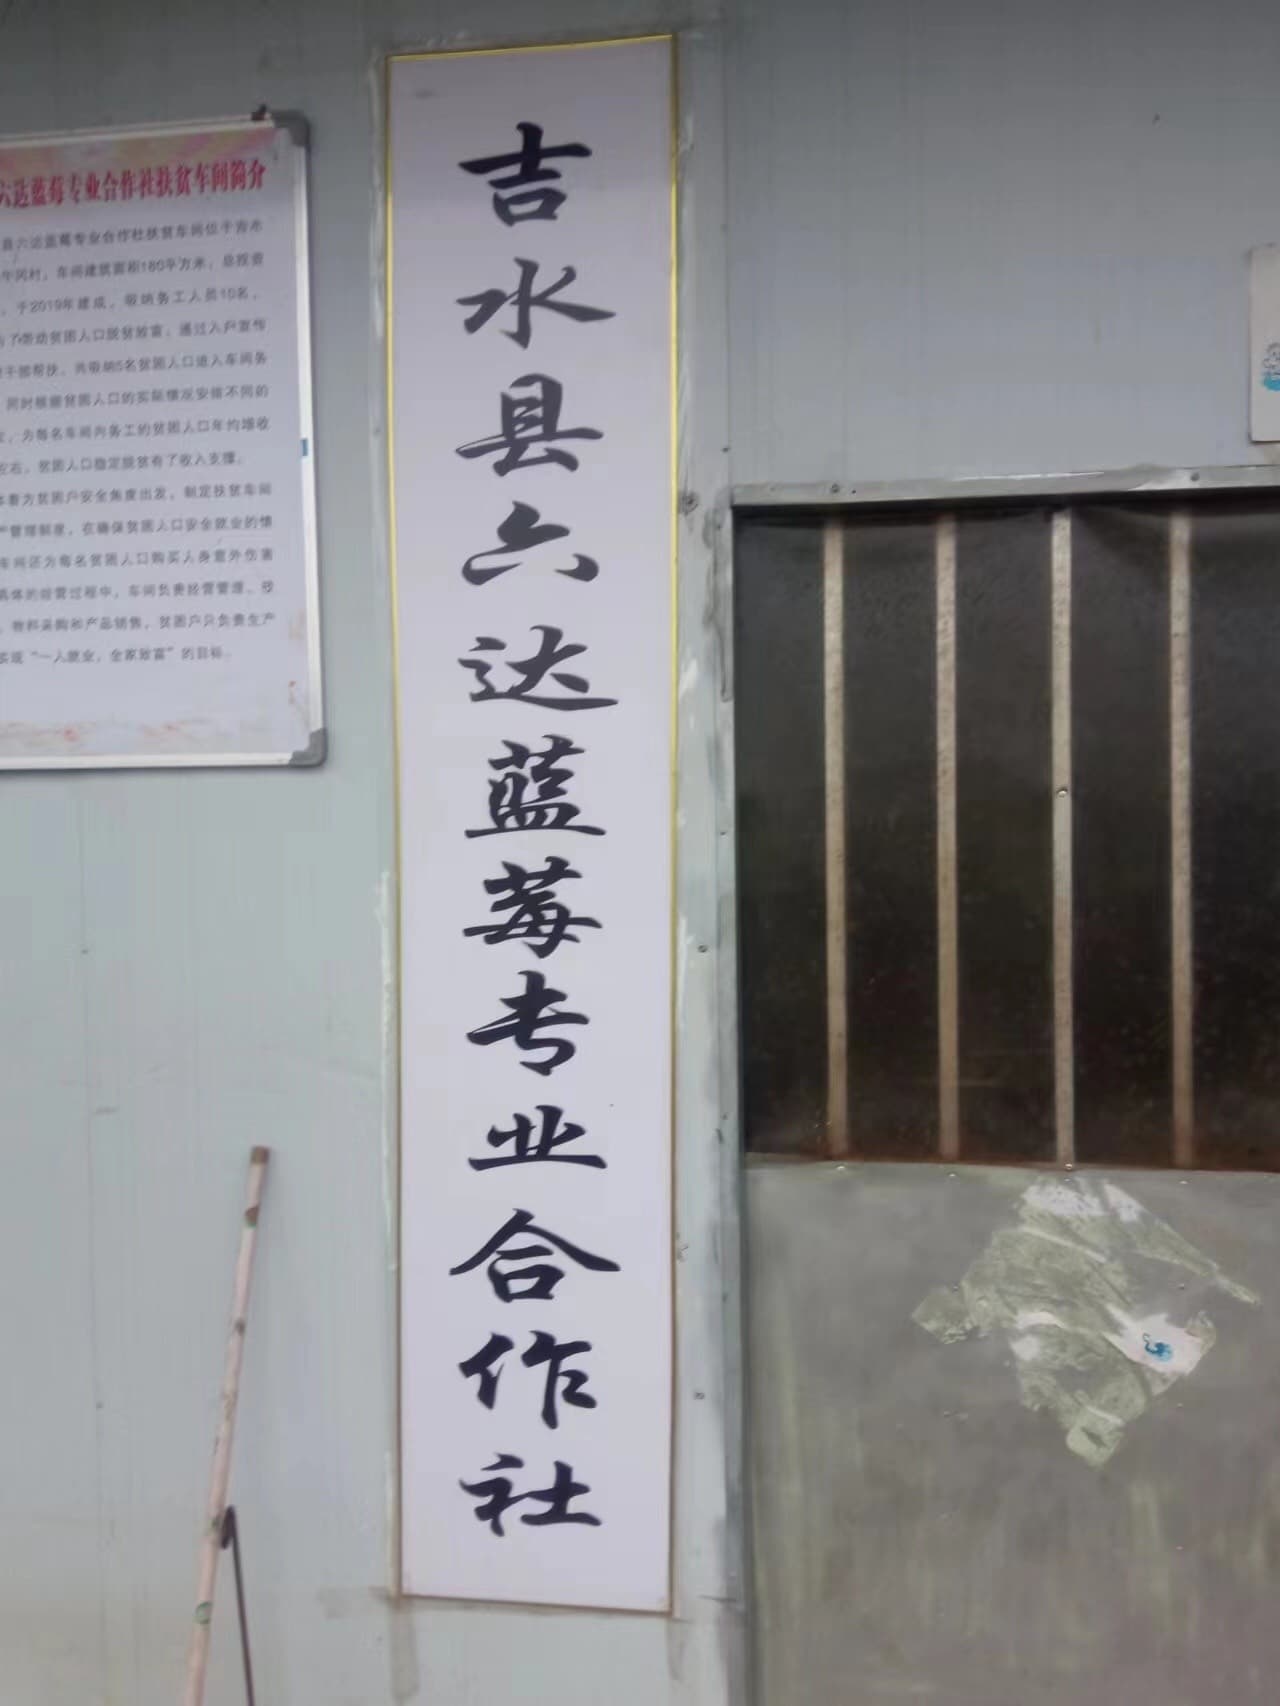 六达蓝莓专业合作社扶贫车间简介
县六达蓝莓专业合作社扶贫车间位于吉水
午冈村，车间建筑面积180平方米，总投资
，于2019年建成，吸纳务工人员10名，
了带动贫困人口脱贫致富，通过入户宣传
干部帮扶，共吸纳5名贫困人口进入车间务
同时根据贫困人口的实际情况安排不同的
，为每名车间内务工的贫困人口年均增收
左右，贫困人口稳定脱贫有了收入支撑。
着为贫困户安全角度出发，制定扶贫车间
产管理制度，在确保贫困人口安全就业的情
车间还为每名贫困人口购买人身意外伤害
具体的经营过程中，车间负责经营管理、
、物料采购和产品销售，贫困户只负责生产
实现“一人就业，全家致富”的目标。
吉水县六达蓝莓专业合作社